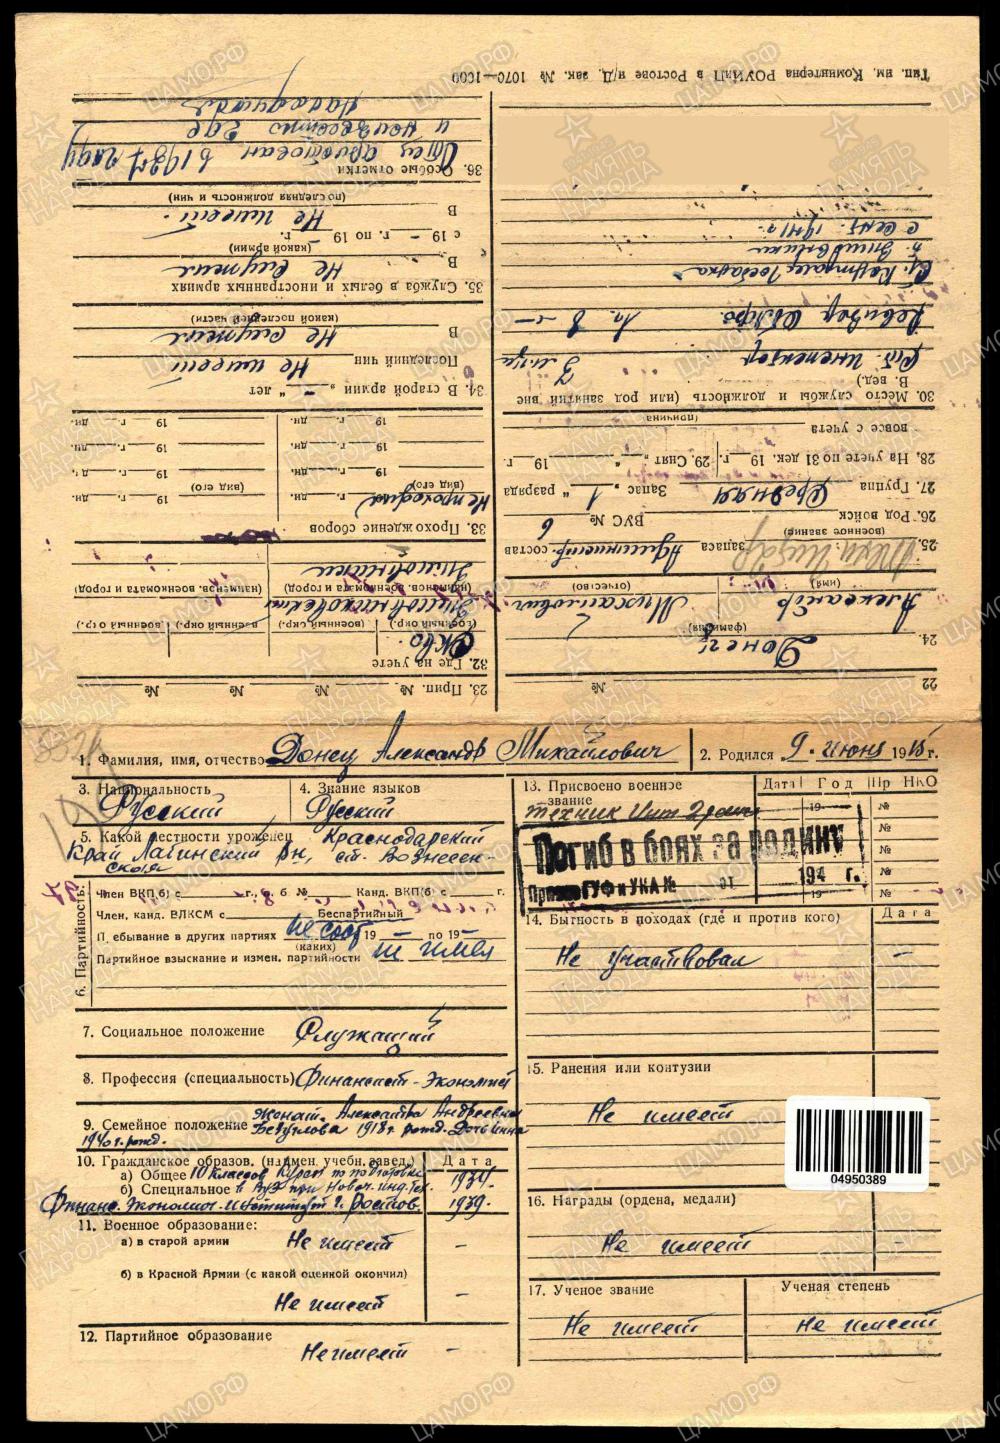 Тип. им. Коминтерна РОУИиП в Ростове н/Д. зак. № 1070—1000
22 №
23. Прип. № № №
24. Донец
(фамилия)
Александр Михайлович
(имя) (отчество)
25. Техн. Инт 2р запаса Администр. состав
(военное звание)
26. Род войск ВУС № 6
27. Группа Средняя Запас 1 " разряда
28. На учете по 31 дек. 19 г. 29. Снят " " 19 г.
вовсе с учета
причина
30. Место службы и должность (или род занятий вне
В. вед.)
Ст. инспектор
Ревизор
Зимовники
с сент. 1941 г.
32. Где на учете
Скво.
(военный окр.) (военный окр.) (военный окр.)
Зимовниковский
(наименов. военкомата и город) (наименов. военкомата и город)
Зимовники
33. Прохождение сборов
Не проходил
(вид его) (вид его)
19 г. дн. 19 г. дн.
19 г. дн. 19 г. дн.
19 г. дн. 19 г. дн.
19 г. дн. 19 г. дн.
34. В старой армии „ – “ лет
Последний чин Не имеет
В Не служил
(какой последней части)
35. Служба в белых и иностранных армиях
В Не служил
(какой армии)
с 19 – г. по 19 – г.
В Не имеет.
(последняя должность и чин)
36. Особые отметки Отец арестован в 1937 году
и неизвестно где
находится
1. Фамилия, имя, отчество Донец Александр Михайлович
2. Родился 9. июня 1915 г.
3. Национальность
Русский
4. Знание языков
Русский
5. Какой местности уроженец Краснодарский
Край Лабинский рн, ст. Вознесен-
ская
6. Партийность:
Член ВКП(б) с г. б № Канд. ВКП(б) с г.
Член, канд. ВЛКСМ с Беспартийный
Пребывание в других партиях не сост 19 по 19
(каких)
Партийное взыскание и измен. партийности не имел
7. Социальное положение Служащий
8. Профессия (специальность) Финансист-Экономист
9. Семейное положение Женат. Александра Андреевна
Безуглова 1918 г рожд. Дочь Инна
1940 г. рожд.
10. Гражданское образов. (наимен. учебн. завед.) Дата
а) Общее 10 классов Курсы по подготовке 1934.
б) Специальное в ВУЗ при Новоч. инд. тех.
Финанс. Экономич. Институт г. Ростов. 1939.
11. Военное образование:
а) в старой армии Не имеет –
б) в Красной Армии (с какой оценкой окончил)
Не имеет –
12. Партийное образование
Не имеет –
13. Присвоено военное
звание
Дата Год Пр НКО
техник Инт 2 ранга 19 №
№
№
19 №
Погиб в боях за родину
Приказ ГУФ и УКА № от 194 г.
14. Бытность в походах (где и против кого) Дата
Не участвовал –
15. Ранения или контузии
Не имеет
16. Награды (ордена, медали)
Не имеет –
17. Ученое звание Ученая степень
Не имеет Не имеет
04950389
ПАМЯТЬ НАРОДА
ЦАМО.РФ